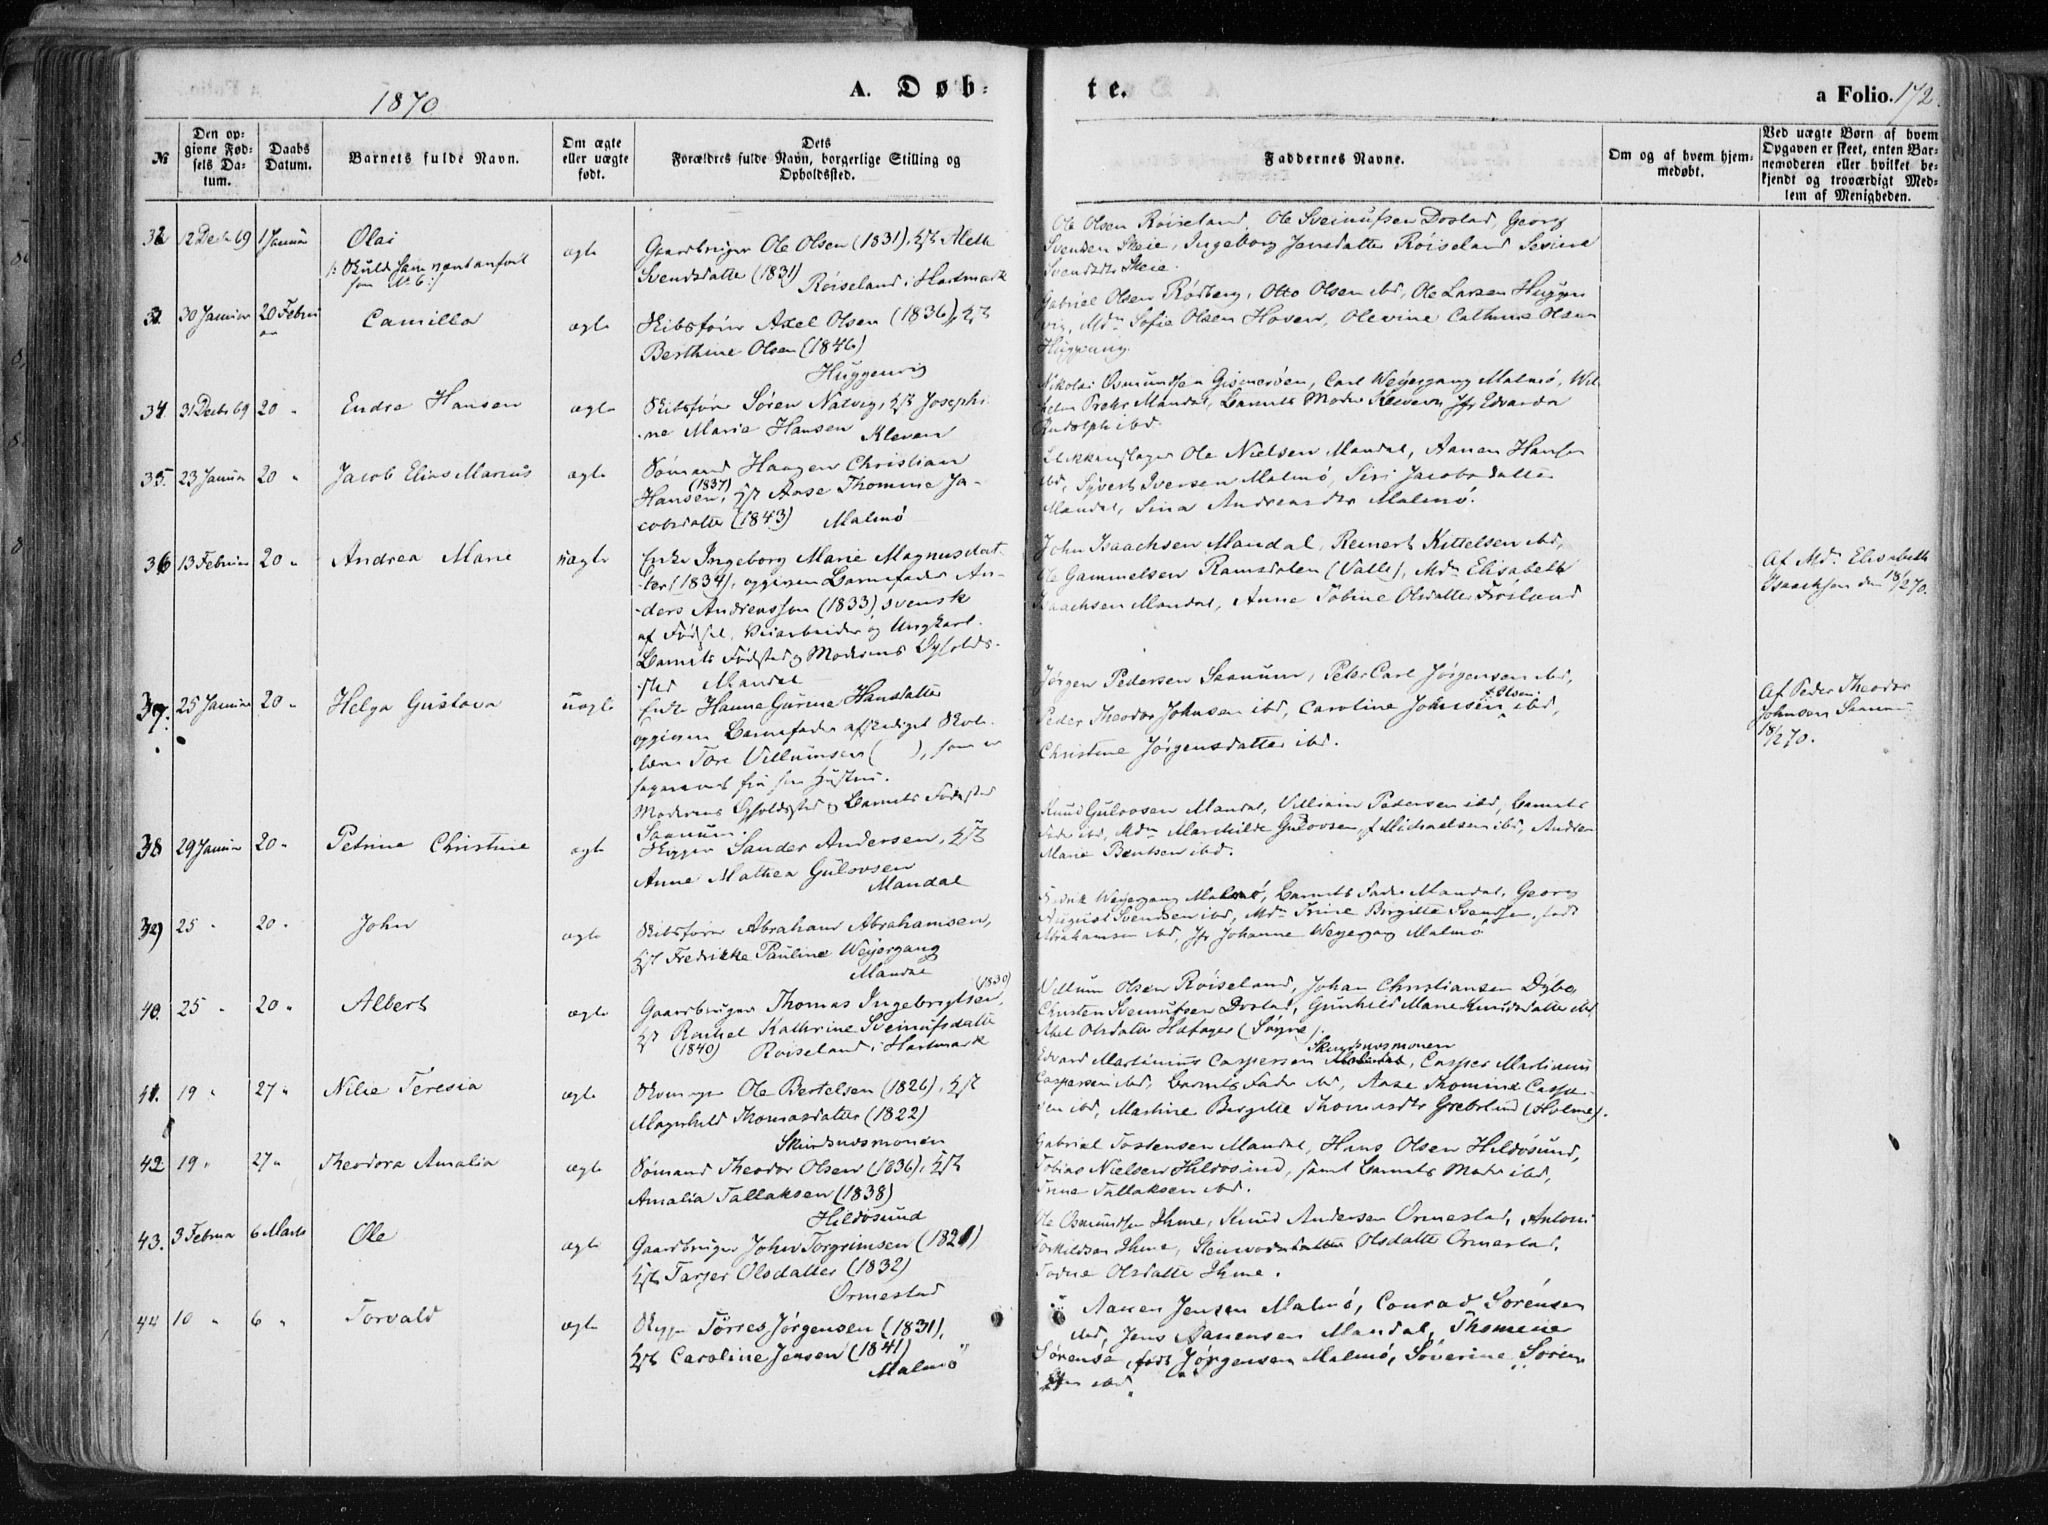 1870
A. Døb-
te.
a Folio. 172.
№
Den op-
givne Fød-
sels Da-
tum.
Daabs
Datum.
Barnets fulde Navn.
Om ægte
eller uægte
født.
Dets
Forældres fulde Navn, borgerlige Stilling og
Opholdssted.
Faddernes Navne.
Om og af hvem hjem-
medøbt.
Ved uægte Børn af hvem
Opgaven er skeet, enten Bar-
nemoderen eller hvilket be-
kjendt og troværdigt Med-
lem af Menigheden.
32 12 Decbr 69 1 Januar Olai ægte
Gaardbruger Ole Olsen (1831), Alette
Svendsdatter (1831) Røiseland i Hartmark
Ole Olsen Røiseland, Ole Sveinufsen Dostad, Georg
Svendsen Skeie, Ingeborg Jensdatter Røiseland
Svendsdtr Skeie.
30 Januar 20 Februar Camilla ægte
Skibsfører Axel Olsen (1836),
Berthine Olsen (1846)
Huggenvig
Gabriel Olsen Rødberg, Otto Olsen ibd, Ole Larsen Huggen
vig, Mdm Sofie Olsen Haven, Olevine Cathrine Olsen
34 31 Decbr 69 20 " Endre Hansen ægte
Skibsfører Søren Natvig, Josephi
ne Marie Hansen Kleven
Nikolai Osmundsen Gismerøen, Carl Weyergang Malmø, Wil
helm Mandal, Barnets Moder Kleven, Jfr Edvarda
Rudolph ibd.
35. 23 Januar 20 " Jacob Elias Marius ægte
Sømand Haagen Christian
Hansen (1837), Aase Thomine Ja-
cobsdatter (1843) Malmø
Ole Nielsen Mandal, Aanen Hansen
ibd, Syvert Iversen Malmø, Siri Jacobsdatter
Mandal, Sina Andreasdtr Malmø.
36 13 Februar 20 " Andrea Marie uægte
Enke Ingeborg Marie Magnusdat-
ter (1834), opgiven Barnefader An-
ders Andreasson (1833) svensk
af Fødsel, Veiarbeider og Ungkarl.
Barnets Fødested og Moderens Opholds-
sted Mandal
John Isaachsen Mandal, Reinert Kittelsen ibd,
Ole Gammelsen Ramsdalen (Valle), Mdm Elisabeth
Isaachsen Mandal, Anne Tobine Olsdatter Frøiland
Af Mdm Elisabeth
Isaachsen den 18/2 70.
37. 25 Januar 20 " Helga Gustava uægte
Enke Hanne Gurine Hansdatter
opgiven Barnefader afskediget Skole
lærer Tore Villumsen ( ), som er
separeret fra sin Hustru.
Moderens Opholdssted og Barnets Fødested
Saanum.
Jørgen Pedersen Saanum, Peter Carl Jørgensen ibd,
Peder Theodor Johnsen ibd, Caroline Johnsen f. Olsen ibd,
Christine Jørgensdatter ibd.
Af Peder Theodor
Johnsen Saanum
18/2 70.
38 29 Januar 20 " Petrine Christine ægte
Skipper Sander Andersen,
Anne Mathea Gulovsen
Mandal
Knud Gulovsen Mandal, Villiam Pedersen ibd, Barnets
Fader ibd, Mdm Marthilde Gulovsen f. Michaelsen ibd, Andrea
Marie Bentsen ibd.
39 25 " 20 " John ægte
Skibsfører Abraham Abrahamsen,
Fredrikke Pauline Weyergang
Mandal
Fredrik Weyergang Malmø, Barnets Fader Mandal, Georg
August Svendsen ibd, Mdm Trine Birgitte Svendsen, født
Abrahamsen ibd, Jfr Johanne Weyergang Malmø
40. 25 " 20 " Albert ægte
Gaardbruger Thomas Ingebrigtsen (1830),
Rachel Kathrine Sveinufsdatter
(1840) Røiseland i Hartmark
Villum Olsen Røiseland, Johan Christiansen Dybo
Christen Sveinufsen Dostad, Gunhild Marie Knudsdatter ibd
Abel Olsdatter Hafager (Søgne).
41. 19 " 27 " Nilie Teresia ægte
Ole Bertelsen (1826),
Magnhild Thomasdatter (1822)
Skindsnesmonen
Edvard Martinius Caspersen Skindsnesmonen, Casper Martinius
Caspersen ibd, Barnets Fader ibd, Aase Thomine Casper
sen ibd, Martine Birgitte Thomasdtr Grebslund (Holme).
42 19 " 27 " Theodora Amalia ægte
Sømand Theodor Olsen (1836),
Amalia Tallaksen (1838)
Hildøsund
Gabriel Tostensen Mandal, Hans Olsen Hildøsund,
Tobias Nielsen Hildøsund, samt Barnets Moder ibd,
Trine Tallaksen ibd.
43. 3 Februar 6 Marts Ole ægte
Gaardbruger John Torgrimsen (1821)
Tarjer Olsdatter (1832)
Ormestad
Ole Osmundsen Ihme, Knud Andersen Ormestad, Antoni
Torkildsen Ihme, Olsdatter Ormestad,
Todne Olsdatter Ihme.
44 10 " 6 " Torvald ægte
Skipper Torres Jørgensen (1831),
Caroline Jensen (1841)
Malmø
Aanen Jensen Malmø, Conrad Sørensen
ibd, Jens Aanensen Mandal, Thomine
Sørensen født Jørgensen Malmø, Severine Søren
sen ibd.